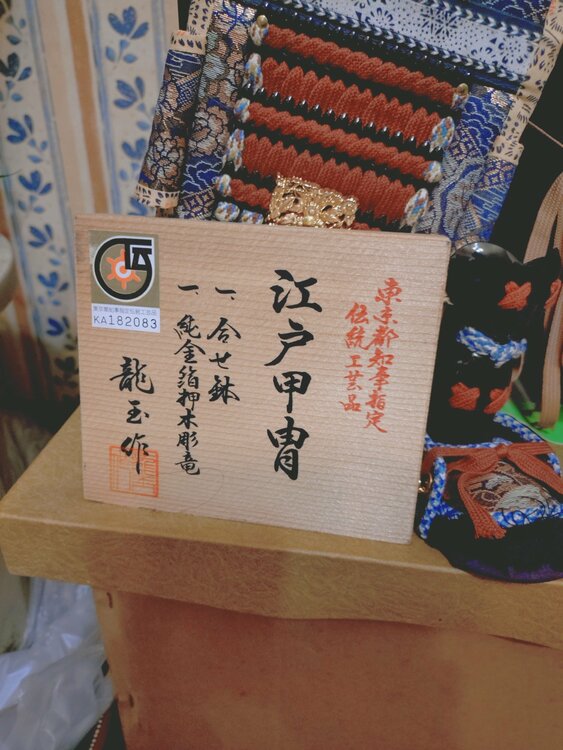 東京都知事指定
伝統工芸品
江戸甲冑
一、合せ鉢
一、純金箔押木彫竜
龍玉作
伝
東京都知事指定伝統工芸品
KA182083